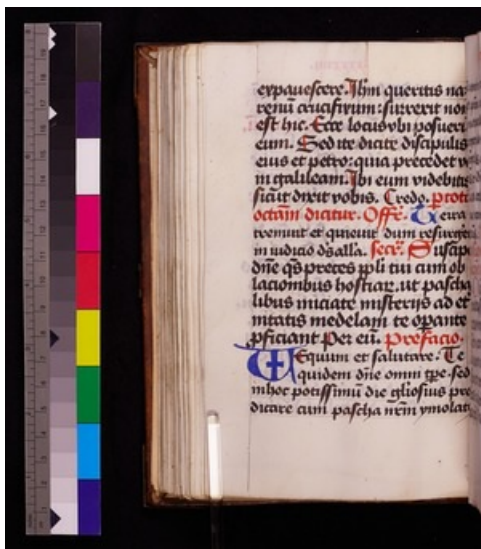 expauescere. Ihm queritis na
renū crucifixum: surrexit non
est hic. Ecce locus vbi posueri
eum. Sed ite dicite discipulis
eius et petro: quia precedet v
in galileam. Ibi eum videbitis
sicut dixit vobis. Credo. p toti
octam dicitur. Offr. Terra
tremuit et quieuit dum resurget
in iudicio ds alla. secr. Suscip
dne qs preces ppli tui cum ob
lacionibus hostiar. ut pascha
libus iniciate misterijs ad et
nitatis medelam te opante
pficiant Per eū. prefacio.
Equum et salutare. Te
quidem dne omni tpe. sed
in hoc potissimū die gliosius pre
dicare cum pascha nrm ymolat